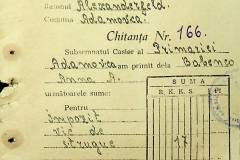 Raionul Alexanderfeld.
Comuna Adamovca.
Chitanța Nr. 166.
Subsemnatul Casier al Primariei
Adamovca am primit dela Babenco
Anna A.
următoarele sume:
SUMA
Pentru
R. K. K. S.
impozit
vie de
strugue
17